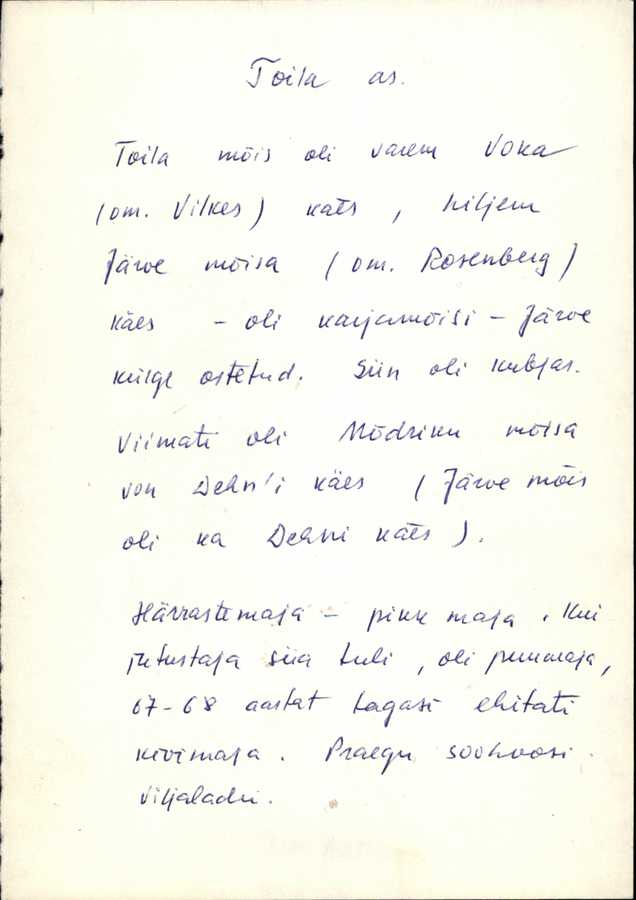 Toila as.
Toila mõis oli varem Voka
(om. Vilkes) käes, hiljem
Järve mõisa (om. Rosenberg)
käes - oli karjamõisi - Järve
külge ostetud. Siin oli kubjas.
Viimati oli Mõdriku mõisa
von Dehn'i käes (Järve mõis
oli ka Dehni käes).
Härrastemaja - pikk maja. Kui
jutustaja siia tuli, oli puumaja,
67-68 aastat tagasi ehitati
kivimaja. Praegu sovhoosi
viljaladu.